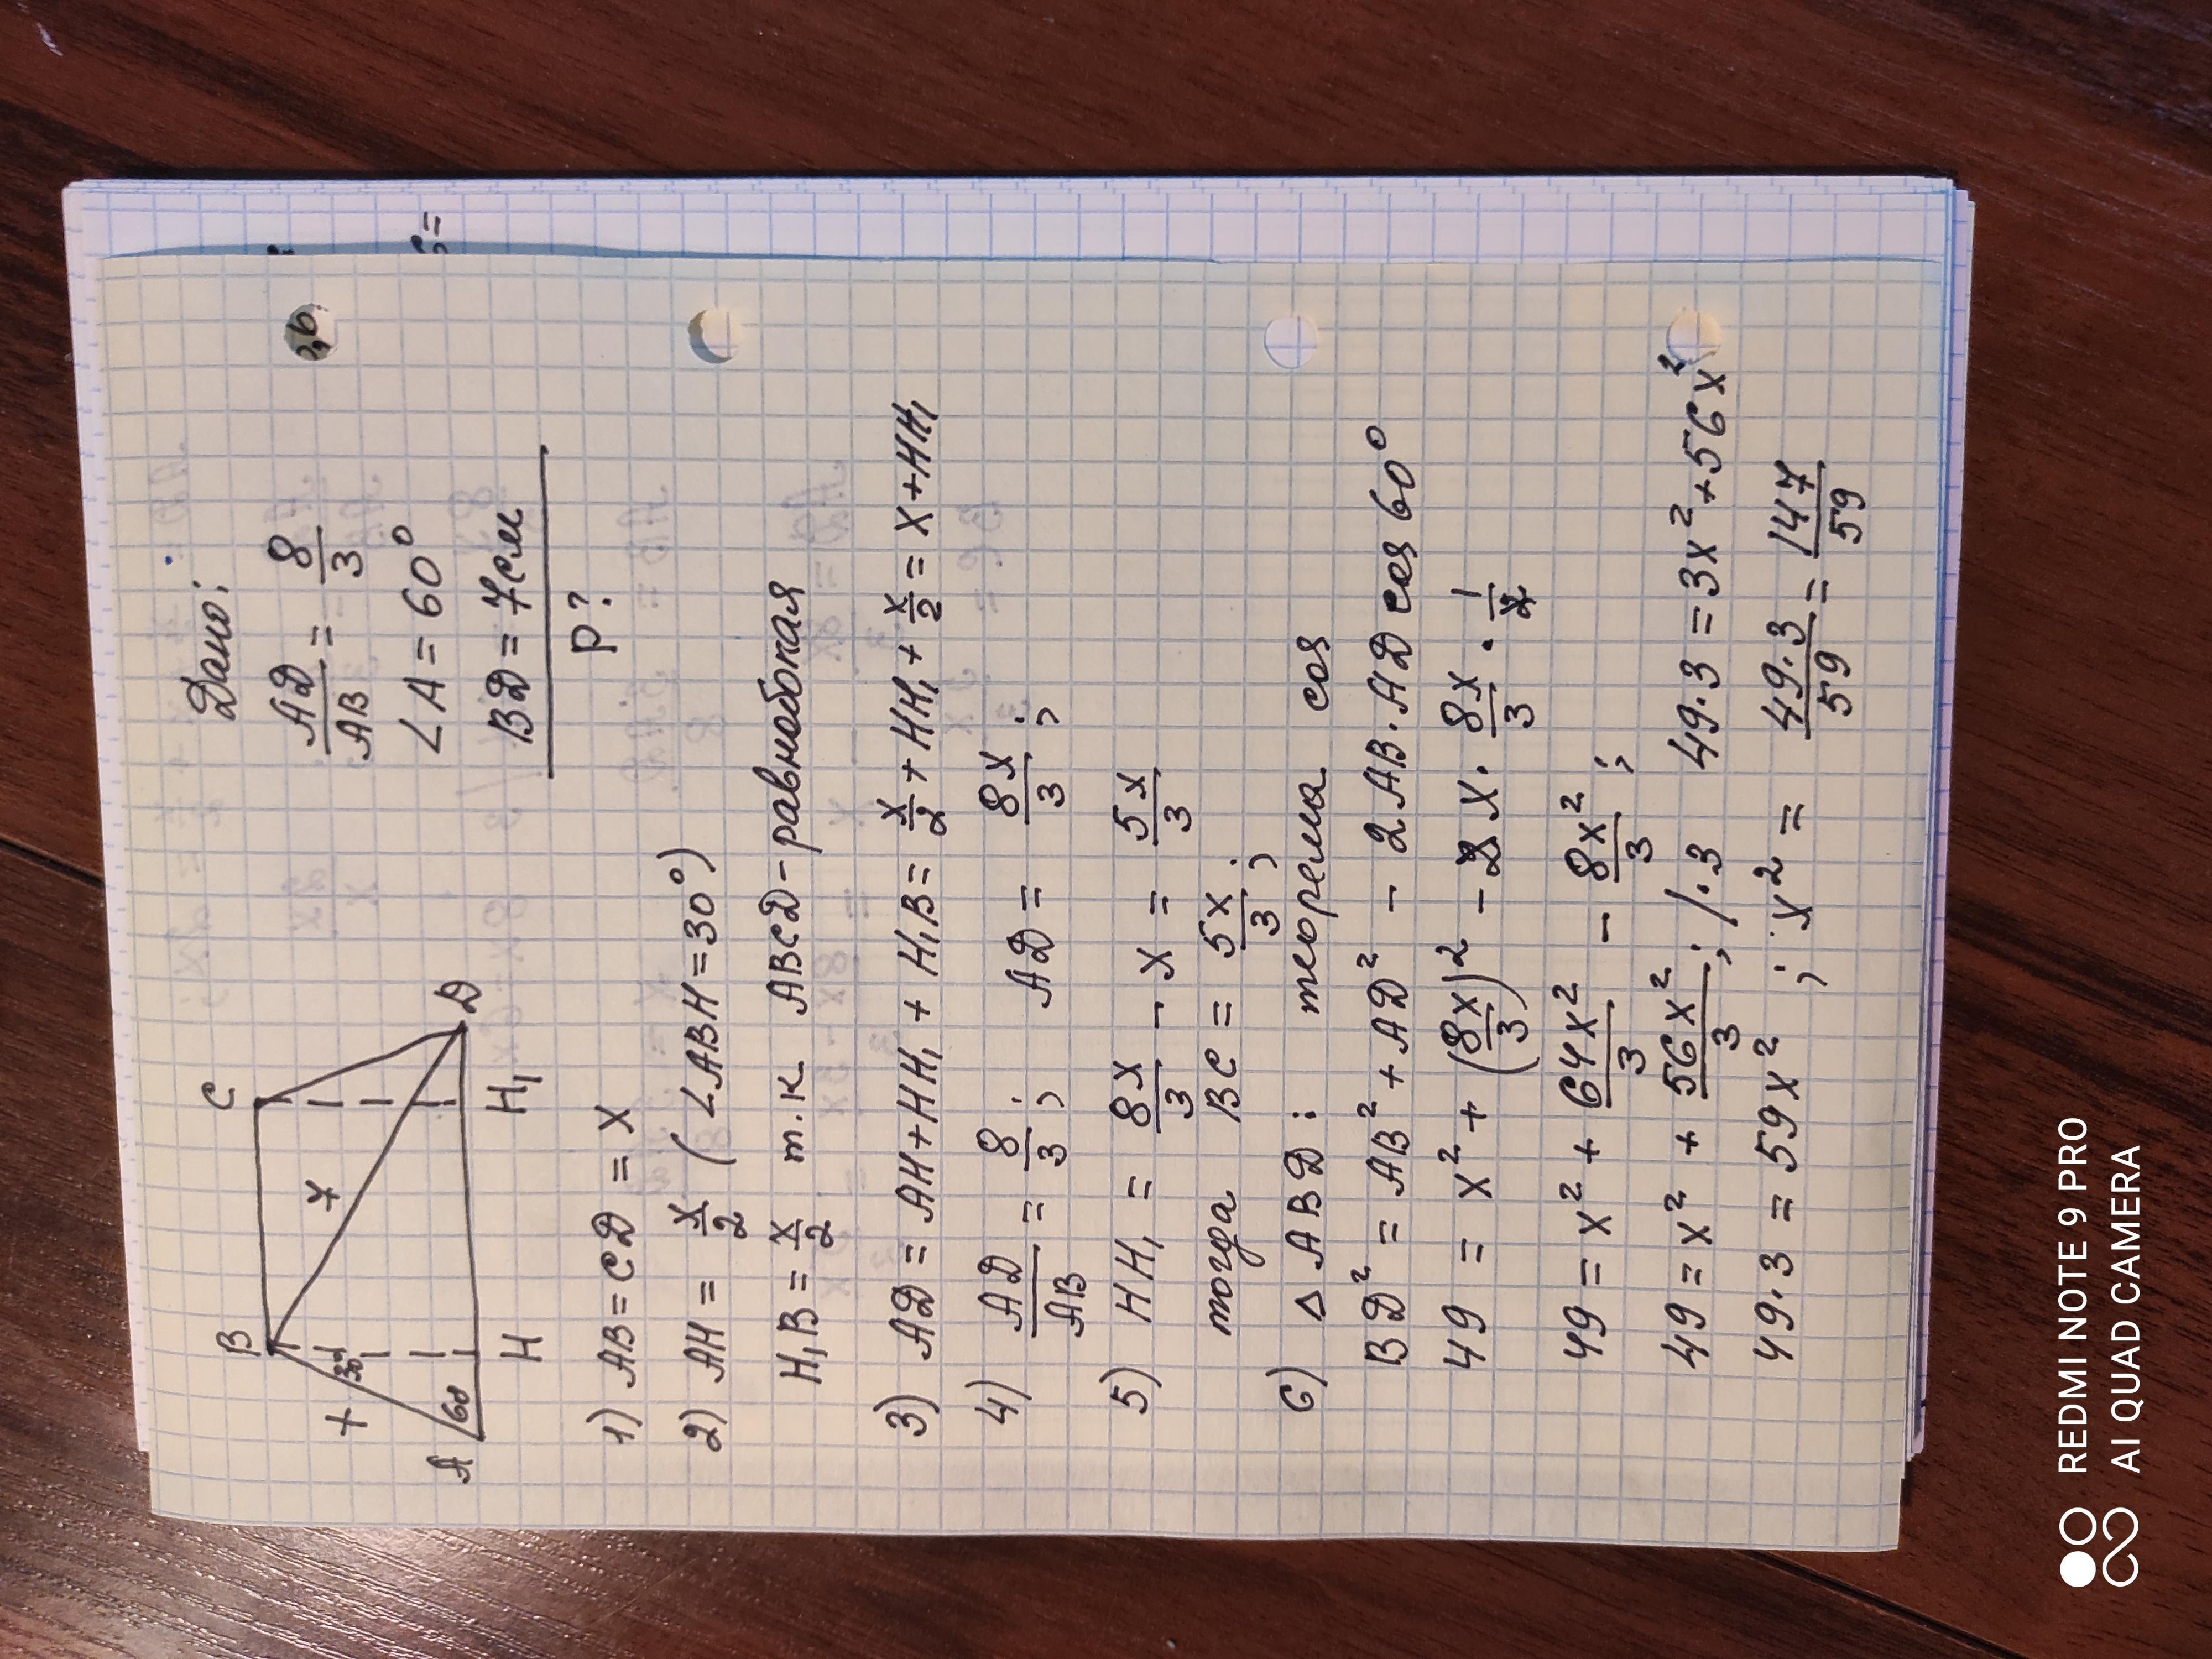 Дано:
B
C
AD/AB = 8/3
x
30°
7
∠A = 60°
A
60
D
BD = 7см
H
H₁
P?
1) AB = CD = x
2) AH = x/2 (∠ABH = 30°)
H₁B = x/2 т.к ABCD - равнобокая
3) AD = AH + HH₁ + H₁B = x/2 + HH₁ + x/2 = x + HH₁
4) AD/AB = 8/3; AD = 8x/3;
5) HH₁ = 8x/3 - x = 5x/3
тогда BC = 5x/3;
6) △ABD: теорема cos
BD² = AB² + AD² - 2AB·AD cos 60°
49 = x² + (8x/3)² - 2x · 8x/3 · 1/2
49 = x² + 64x²/3 - 8x²/3;
49 = x² + 56x²/3; /·3 49·3 = 3x² + 56x²
49·3 = 59x²; x² = 49·3/59 = 147/59
REDMI NOTE 9 PRO
AI QUAD CAMERA